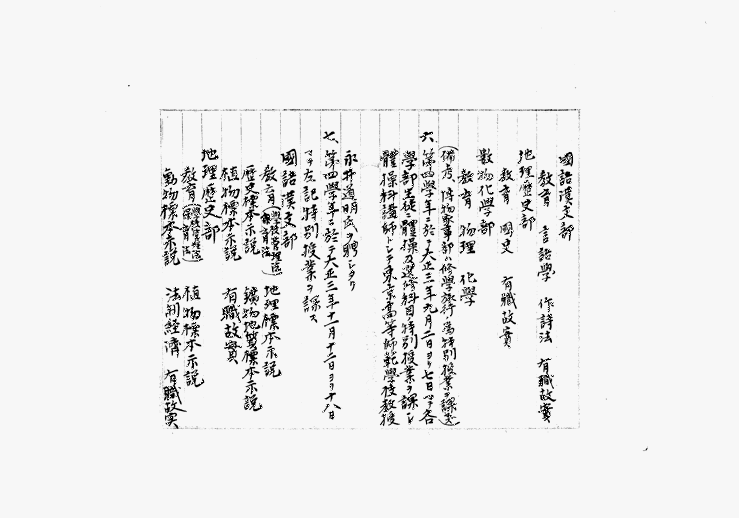 國語漢文部
教育 言語學 作詩法 有職故實
地理歴史部
教育 國史 有職故實
數物化學部
教育 物理 化學
(備考、博物學部ハ修學旅行ノ為特別授業ヲ課セズ)
六、第四學年ニ於テ大正三年九月一日ヨリ七日マデ各
學部生徒ニ體操及選修科目ノ特別授業ヲ課シ
體操科講師トシテ東京高等師範學校教授
永井道明氏ヲ聘シタリ
七、第四學年ニ於テ大正三年十一月十二日ヨリ十八日
マデ左記特別授業ヲ課ス
國語漢文部
教育(學校管理法 教育法) 地理標本示説
歴史標本示説 鑛物地質標本示説
植物標本示説 有職故實
地理歴史部
教育(學校管理法 教育法) 植物標本示説
動物標本示説 法制經濟 有職故実